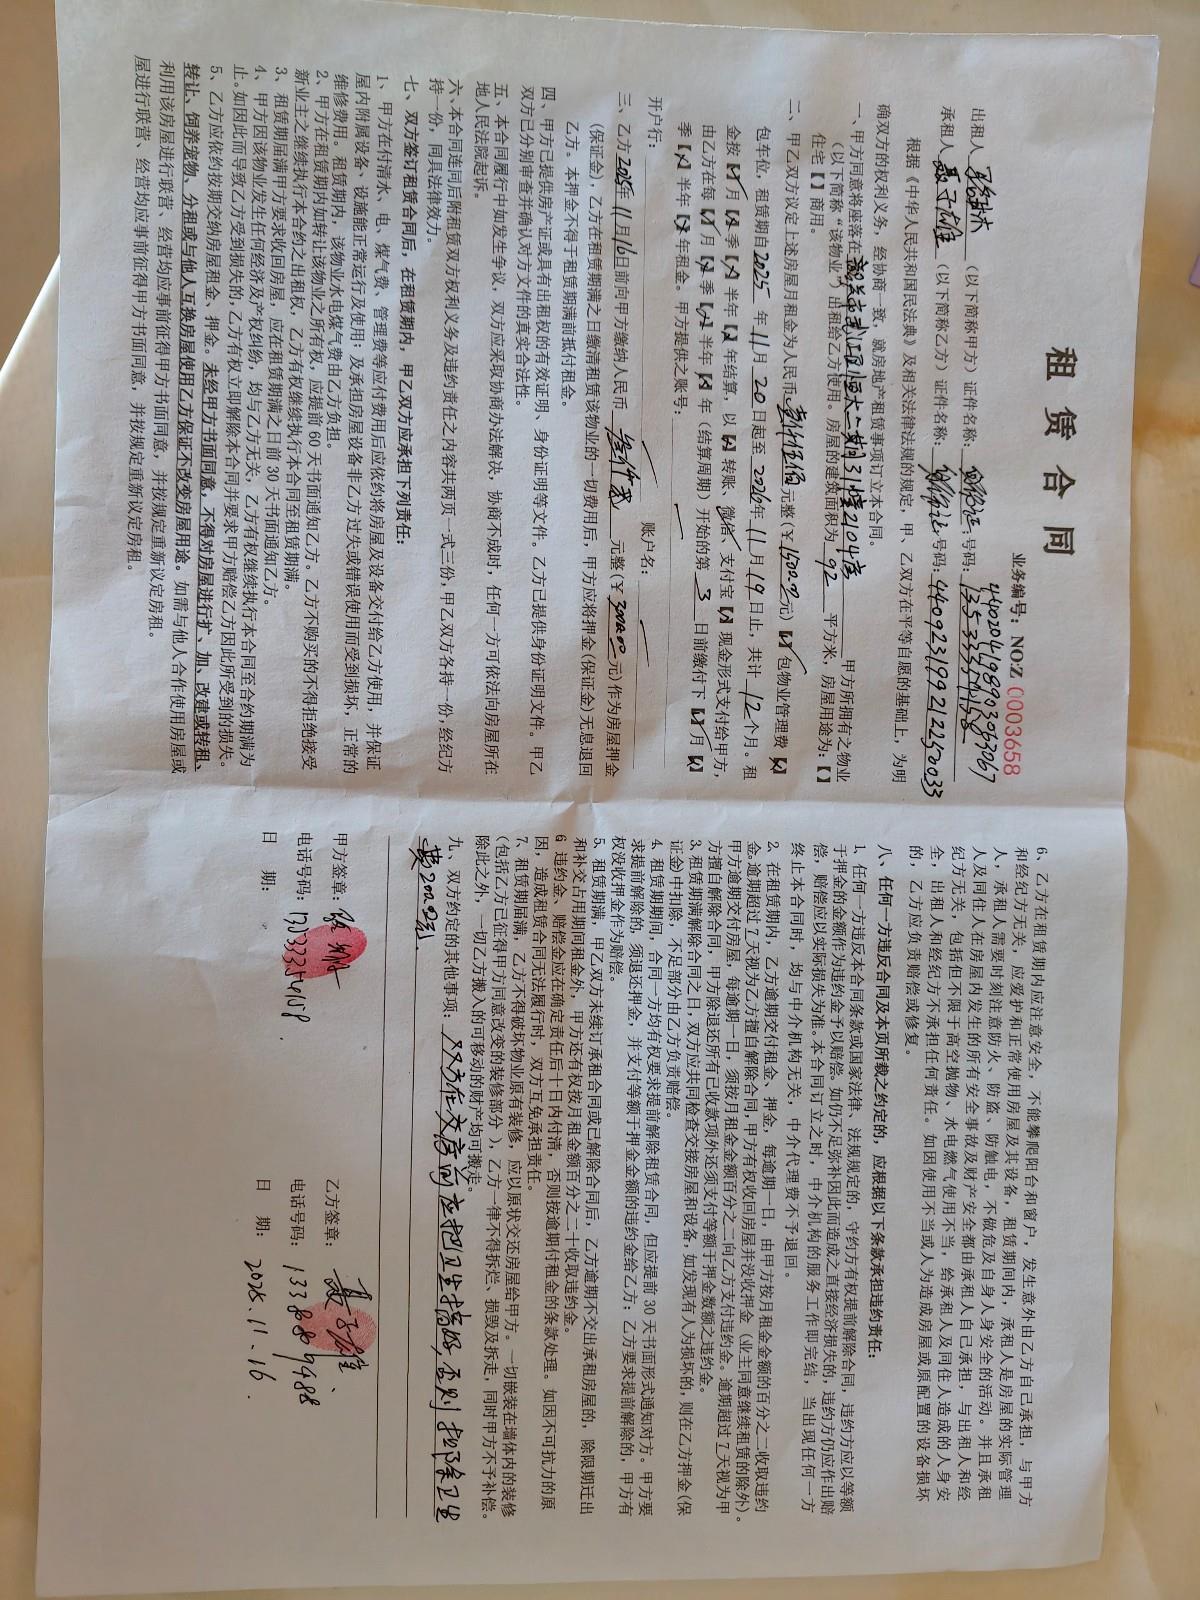 租赁合同
业务编号：NO:Z 0003658
出租人 （以下简称甲方）证件名称： 号码：
承租人 聂子雄 （以下简称乙方）证件名称： 号码：
根据《中华人民共和国民法典》及相关法律法规的规定，甲、乙双方在平等自愿的基础上，为明
确双方的权利义务，经协商一致，就房地产租赁事项订立本合同。
一、甲方同意将座落在 恒大二期31幢2104房 甲方所拥有之物业
（以下简称“该物业”）出租给乙方使用。房屋的建筑面积为 92 平方米，房屋用途为：【 】
住宅【 】商用。
二、甲乙双方议定上述房屋月租金为人民币 壹仟伍佰 元整（￥1500.00元）【√】包物业管理费【 】
包车位，租赁期自2025年11月20日起至2026年11月19日止，共计 12 个月。租
金按【√】月【 】季【 】半年【 】年结算，以【 】转账、微信、支付宝【 】现金形式支付给甲方，
由乙方在每【√】月【 】季【 】半年【 】年（结算周期）开始的第 3 日前缴付下【√】月【 】
季【 】半年【 】年租金。甲方提供之账号：
开户行： 账户名：
三、乙方2025年11月16日前向甲方缴纳人民币 叁仟 元整（￥3000.00元）作为房屋押金
（保证金），乙方在租赁期满之日缴清租赁该物业的一切费用后，甲方应将押金（保证金）无息退回
乙方。本押金不得于租赁期满前抵付租金。
四、甲方已提供房产证或具有出租权的有效证明、身份证明等文件。乙方已提供身份证明文件。甲乙
双方已分别审查并确认对方文件的真实合法性。
五、本合同履行中如发生争议，双方应采取协商办法解决，协商不成时，任何一方可依法向房屋所在
地人民法院起诉。
六、本合同连同后附租赁双方权利义务及违约责任之内容共两页一式三份，甲乙双方各持一份，经纪方
持一份，同具法律效力。
七、双方签订租赁合同后，在租赁期内，甲乙双方应承担下列责任：
1、甲方在付清水、电、煤气费、管理费等应付费用后应依约将房屋及设备交付给乙方使用，并保证
屋内附属设备、设施能正常运行及使用；及承担房屋设备非乙方过失或错误使用而受到损坏，正常的
维修费用。租赁期内，该物业水电煤气费由乙方负担。
2、甲方在租赁期内如转让该物业之所有权，应提前60天书面通知乙方。乙方不购买的不得拒绝接受
新业主之继续执行本合约之出租权，乙方有权继续执行本合同至租赁期满。
3、租赁期届满甲方要求收回房屋，应在租赁期满之日前30天书面通知乙方。
4、甲方因该物业发生任何经济及产权纠纷，均与乙方无关，乙方有权继续执行本合同至合约期满为
止。如因此而导致乙方受到损失的，乙方有权立即解除本合同并要求甲方赔偿乙方因此所受到的损失。
5、乙方应依约按期交纳房屋租金，押金。未经甲方书面同意，不得对房屋进行扩、加、改建或转租、
转让、饲养宠物、分租或与他人互换房屋使用乙方保证不改变房屋用途。如需与他人合作使用房屋或
利用该房屋进行联营、经营均应事前征得甲方书面同意，并按规定重新议定房租。
屋进行联营、经营均应事前征得甲方书面同意，并按规定重新议定房租。
6、乙方在租赁期内应注意安全，不能攀爬阳台和窗户，发生意外由乙方自己承担，与甲方
和经纪方无关，应爱护和正常使用房屋及其设备，租赁期间内，承租人是房屋的实际管理
人，承租人需要时刻注意防火、防盗、防触电，不做危及自身人身安全的活动。并且承租
人及同住人在房屋内发生的所有安全事故及财产安全都由承租人自己承担，与出租人和经
纪方无关，包括但不限于高空抛物、水电燃气使用不当，给承租人及同住人造成的人身安
全，出租人和经纪方不承担任何责任。如因使用不当或人为造成房屋或原配置的设备损坏
的，乙方应负责赔偿或修复。
八、任何一方违反合同及本页所载之约定的，应根据以下条款承担违约责任：
1. 任何一方违反本合同条款或国家法律、法规规定的，守约方有权提前解除合同，违约方应以等额
于押金的金额作为违约金予以赔偿。如仍不足弥补因此而造成之直接经济损失的，违约方仍应作出赔
偿，赔偿应以实际损失为准。本合同订立之时，中介机构的服务工作即完结，当出现任何一方
终止本合同时，均与中介机构无关，中介代理费不予退回。
2. 在租赁期内，乙方逾期交付租金、押金，每逾期一日，由甲方按月租金金额的百分之二收取违约
金。逾期超过7天视为乙方擅自解除合同，甲方有权收回房屋并没收押金（业主同意继续租赁的除外）。
甲方逾期交付房屋，每逾期一日，须按月租金金额百分之二向乙方支付违约金。逾期超过7天视为甲
方擅自解除合同，甲方除退还所有已收款项外还须支付等额于押金数额之违约金。
3. 租赁期满解除合同之日，双方应共同检查交接房屋和设备，如发现有人为损坏的，则在乙方押金（保
证金）中扣除，不足部分由乙方负责赔偿。
4. 租赁期期间，合同一方均有权要求提前解除租赁合同，但应提前30天书面形式通知对方。甲方要
求提前解除的，须退还押金，并支付等额于押金金额的违约金给乙方；乙方要求提前解除的，甲方有
权没收押金作为赔偿。
5. 租赁期满，甲乙双方未续订承租合同或已解除合同后，乙方逾期不交出承租房屋的，除限期迁出
和补交占用期间租金外，甲方还有权按月租金额百分之二十收取违约金。
6 违约金、赔偿金应在确定责任后十日内付清，否则按逾期付租金的条款处理。如因不可抗力的原
因，造成租赁合同无法履行时，双方互免承担责任。
7、租赁期届满，乙方不得破坏物业原有装修，应以原状交还房屋给甲方。一切嵌装在墙体内的装修
（包括乙方已征得甲方同意改变的装修部分），乙方一律不得拆烂、损毁及拆走，同时甲方不予补偿。
除此之外，一切乙方搬入的可移动的财产均可搬走。
九、双方约定的其他事项： 双方在交房时应把卫生搞好，否则扣除卫生
费200元。
甲方签章： 乙方签章： 聂子雄
电话号码： 电话号码：
日 期： 日 期： 2025.11.16.